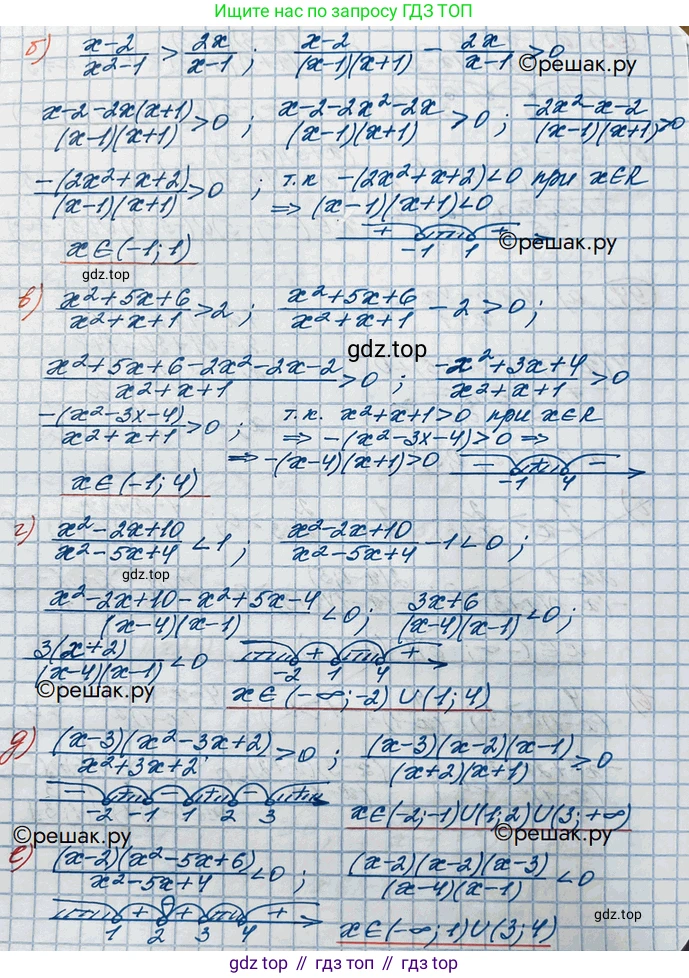 Ищите подсказку в ГДЗ ТОП
б) (x-2)/(x²-1) > 2x/(x-1) ; (x-2)/((x-1)(x+1)) - 2x/(x-1) > 0 ©reшак.ру
(x-2-2x(x+1))/((x-1)(x+1)) > 0 ; (x-2-2x²-2x)/((x-1)(x+1)) > 0 ; (-2x²-x-2)/((x-1)(x+1)) > 0
-(2x²+x+2)/((x-1)(x+1)) > 0 ; т.к -(2x²+x+2) < 0 при x∈R
⇒ (x-1)(x+1) < 0
+ - +
-1 1 ©reшак.ру
x∈(-1; 1)
gdz.top
в) (x²+5x+6)/(x²+x+1) > 2 ; (x²+5x+6)/(x²+x+1) - 2 > 0 ;
gdz.top
(x²+5x+6-2x²-2x-2)/(x²+x+1) > 0 ; (-x²+3x+4)/(x²+x+1) > 0
-(x²-3x-4)/(x²+x+1) > 0 ; т.к. x²+x+1 > 0 при x∈R
⇒ -(x²-3x-4) > 0 ⇒
⇒ -(x-4)(x+1) > 0 - + -
-1 4
x∈(-1; 4)
г) (x²-2x+10)/(x²-5x+4) < 1 ; (x²-2x+10)/(x²-5x+4) - 1 < 0 ;
gdz.top
(x²-2x+10-x²+5x-4)/((x-4)(x-1)) < 0 ; (3x+6)/((x-4)(x-1)) < 0 ;
3(x+2)/((x-4)(x-1)) < 0 + +
-2 1 4
©reшак.ру
x∈(-∞; -2)∪(1; 4)
д) ((x-3)(x²-3x+2))/(x²+3x+2) > 0 ; ((x-3)(x-2)(x-1))/((x+2)(x+1)) > 0
- + - + - +
-2 -1 1 2 3
x∈(-2; -1)∪(1; 2)∪(3; +∞)
©reшак.ру ©reшак.ру
е) ((x-2)(x²-5x+6))/(x²-5x+4) < 0 ; ((x-2)(x-2)(x-3))/((x-4)(x-1)) < 0
+ + +
1 2 3 4
gdz.top
x∈(-∞; 1)∪(3; 4)
gdz.top // гдз топ // гдз.топ